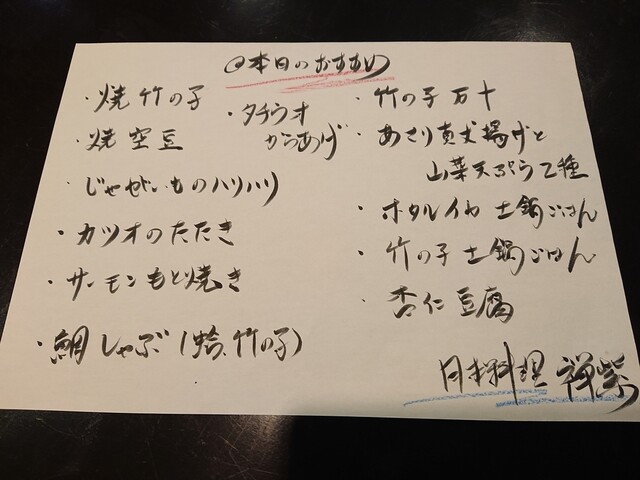 本日のおすすめ
・焼竹の子
・焼空豆
・じゃがいものハリハリ
・カツオのたたき
・サーモンもと焼き
・鯛しゃぶ(蛤、竹の子)
・タチウオ
からあげ
・竹の子万十
・あさり真丈揚げと
山菜天ぷら2種
・ホタルイカ土鍋ごはん
・竹の子土鍋ごはん
・杏仁豆腐
日本料理 禅紫